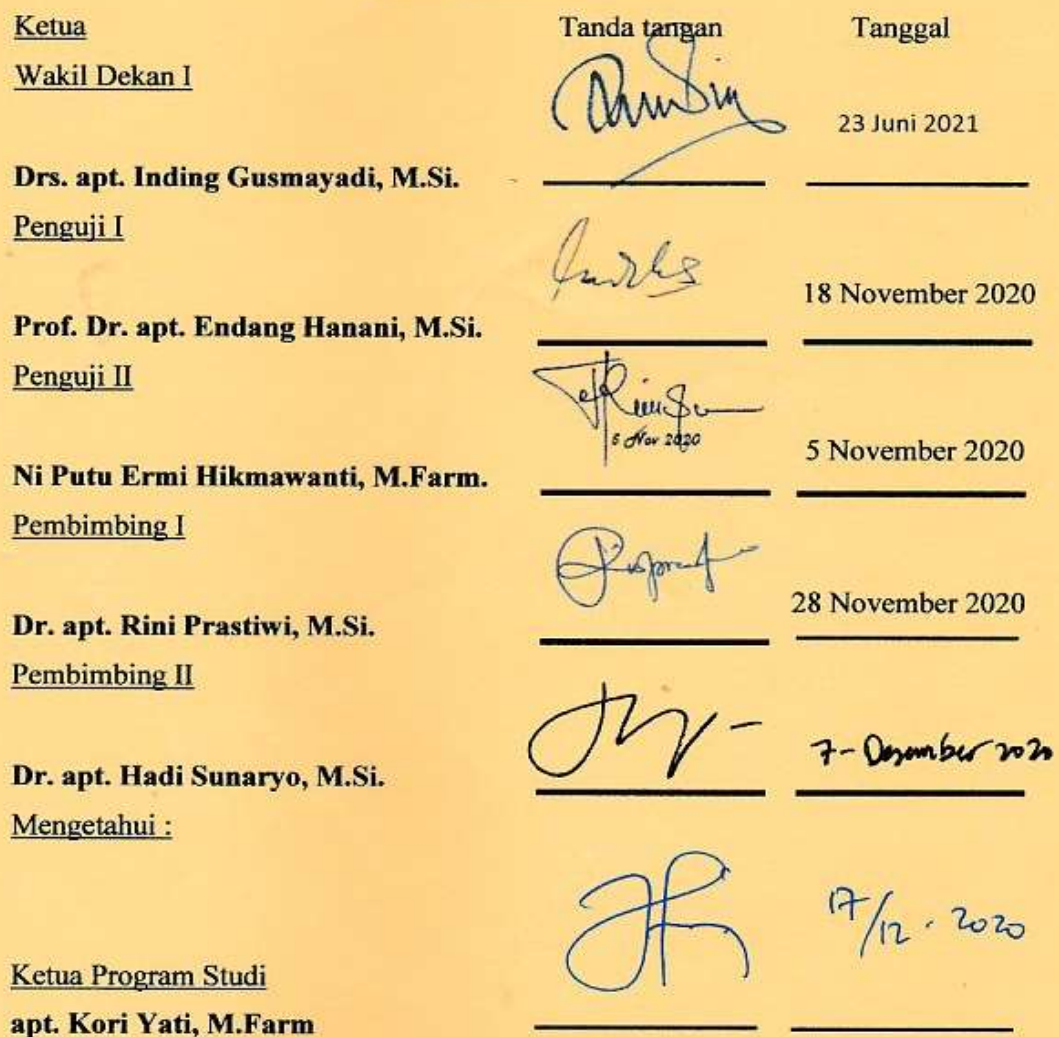 Ketua Tanda tangan Tanggal
Wakil Dekan I
23 Juni 2021
Drs. apt. Inding Gusmayadi, M.Si.
Penguji I
18 November 2020
Prof. Dr. apt. Endang Hanani, M.Si.
Penguji II
5 Nov 2020
5 November 2020
Ni Putu Ermi Hikmawanti, M.Farm.
Pembimbing I
28 November 2020
Dr. apt. Rini Prastiwi, M.Si.
Pembimbing II
7 - Desember 2020
Dr. apt. Hadi Sunaryo, M.Si.
Mengetahui :
17/12 - 2020
Ketua Program Studi
apt. Kori Yati, M.Farm